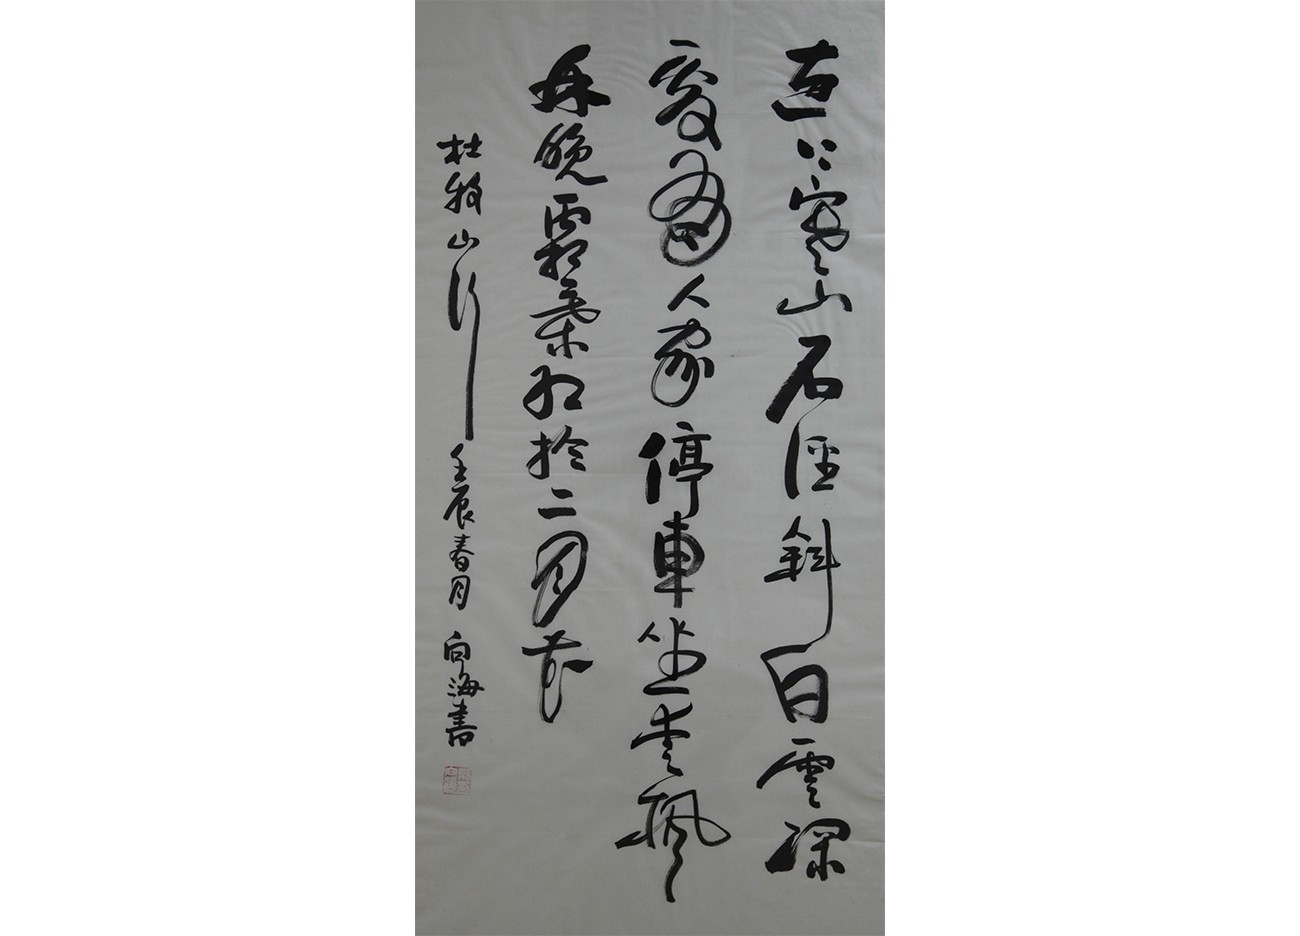 遠上寒山石徑斜白雲深
處有人家停車坐愛楓
林晚霜葉紅於二月花
杜牧山行 壬辰春月 向海書